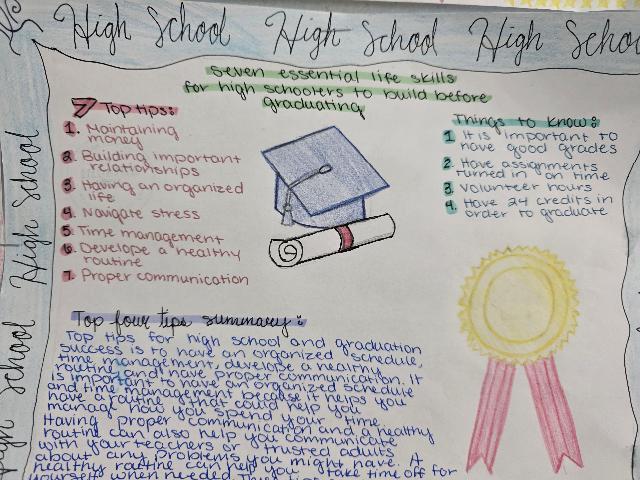 High School High School High School
High School
High School
Seven essential life skills
for high schoolers to build before
graduating
7 Top tips:
1. Maintaining
money
2. Building important
relationships
3. Having an organized
life
4. Navigate stress
5. Time management
6. Develope a healthy
routine
7. Proper communication
Things to know:
1. It is important to
have good grades
2. Have assignments
turned in on time
3. Volunteer hours
4. Have 24 credits in
order to graduate
Top four tips summary:
Top tips for high school and graduation
success is to have an organized schedule,
time management, develope a healthy
routine and have proper communication. It
is important to have an organized schedule
and time management because it helps you
have a routine that could help you
manage how you spend your time.
Having proper communication and a healthy
routine can also help you communicate
with your teachers or trusted adults
about any problems you might have. A
healthy routine can help you take time off for
yourself when needed.